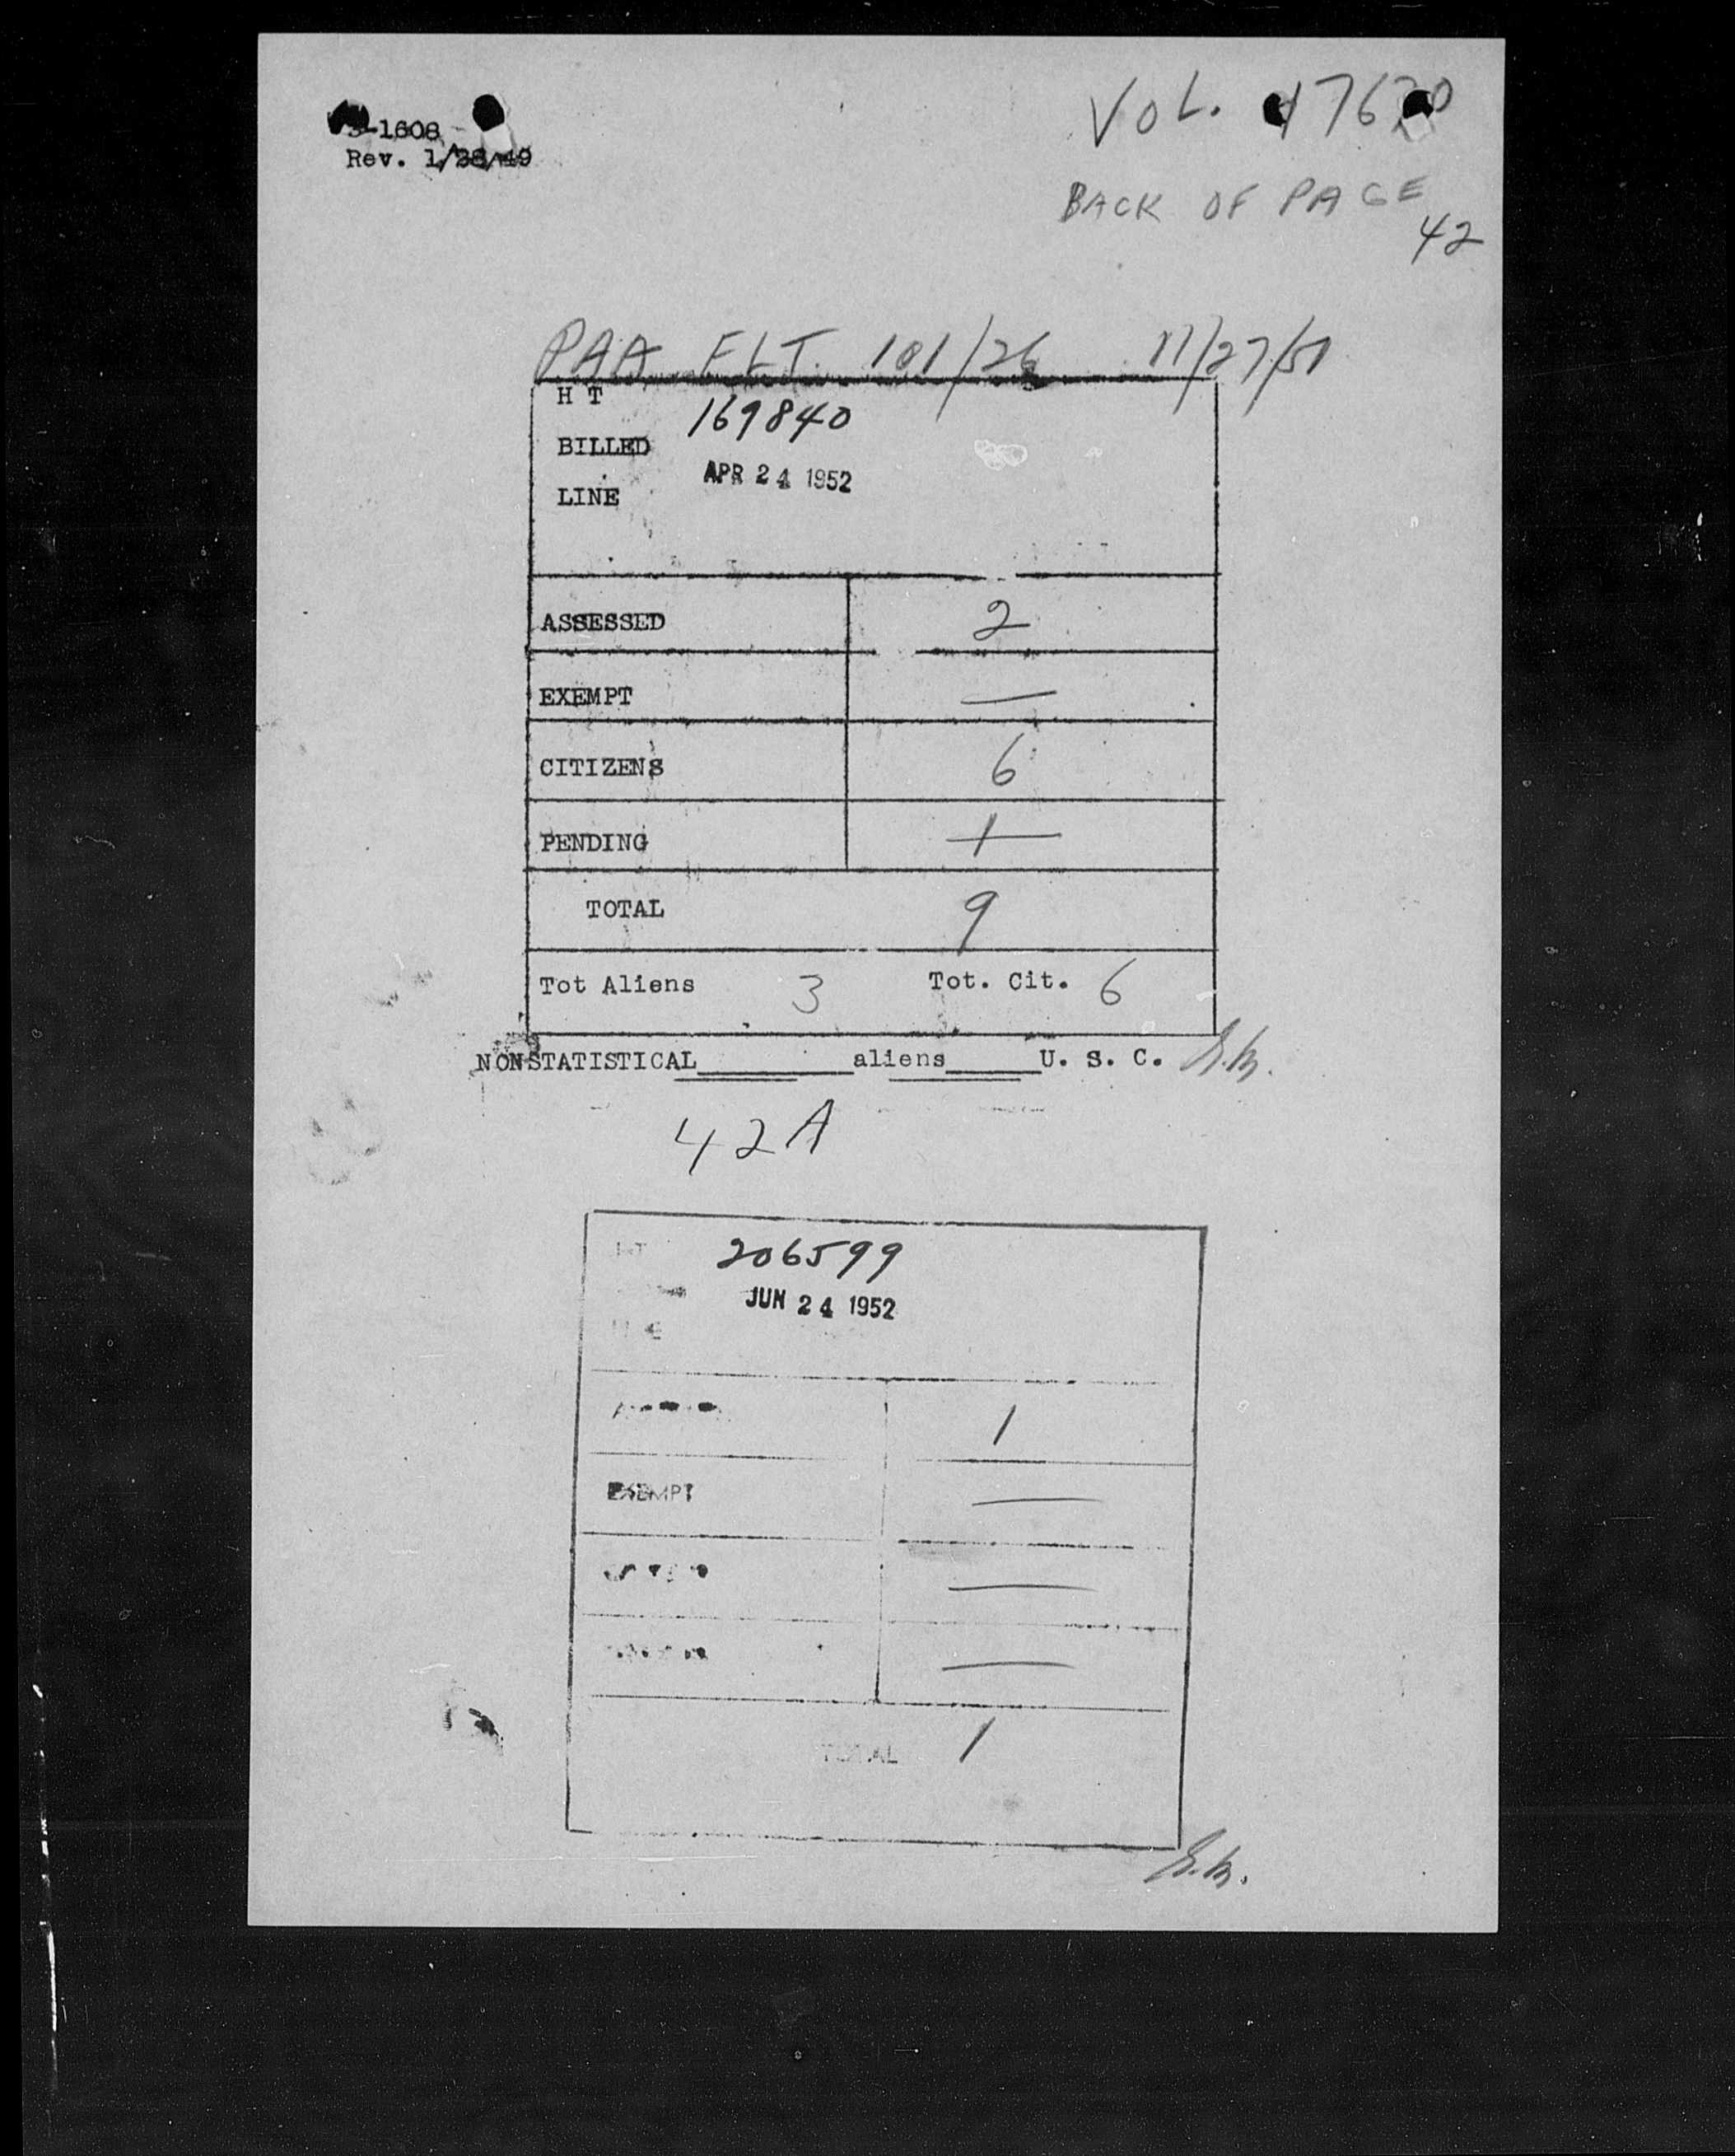 3-1608
Rev. 1/28/49
VOL.
BACK OF PAGE
42
PAA FLT. 101/26 11/27/51
H T 169840
BILLED
APR 24 1952
LINE
ASSESSED 2
EXEMPT —
CITIZENS 6
PENDING 1
TOTAL 9
Tot Aliens 3 Tot. Cit. 6
NONSTATISTICAL________aliens_____U. S. C.
42A
HT 206599
JUN 24 1952
1
EXEMPT —
—
—
TOTAL 1